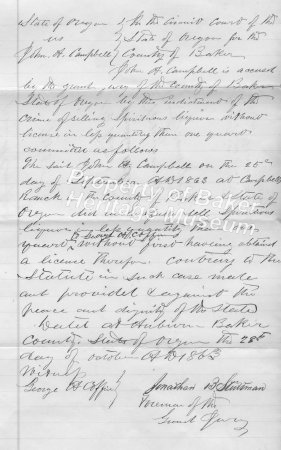 State of Oregon } In the Circuit Court of the
vs } State of Oregon for the
John H. Campbell } County of Baker
John H. Campbell is accused
by the grand jury of the County of Baker
State of Oregon by this indictment of the
crime of selling Spiritous liquors without
license in less quantity than one quart
committed as follows
The said John H Campbell on the 25th
day of September AD 1863 at Campbells
Ranch in the County of Baker State of
Oregon did sell Spiritous
liquors in less quantity than
to George H Coffey
quart without first having obtained
a license therefor contrary to the
Statute in such case made
and provided & against the
peace and dignity of the State
Dated at Auburn Baker
County State of Oregon the 28th
day of October AD 1863
Witness
George H Coffey } Jonathan B
Foreman of the
Grand Jury
Property of Baker
Heritage Museum